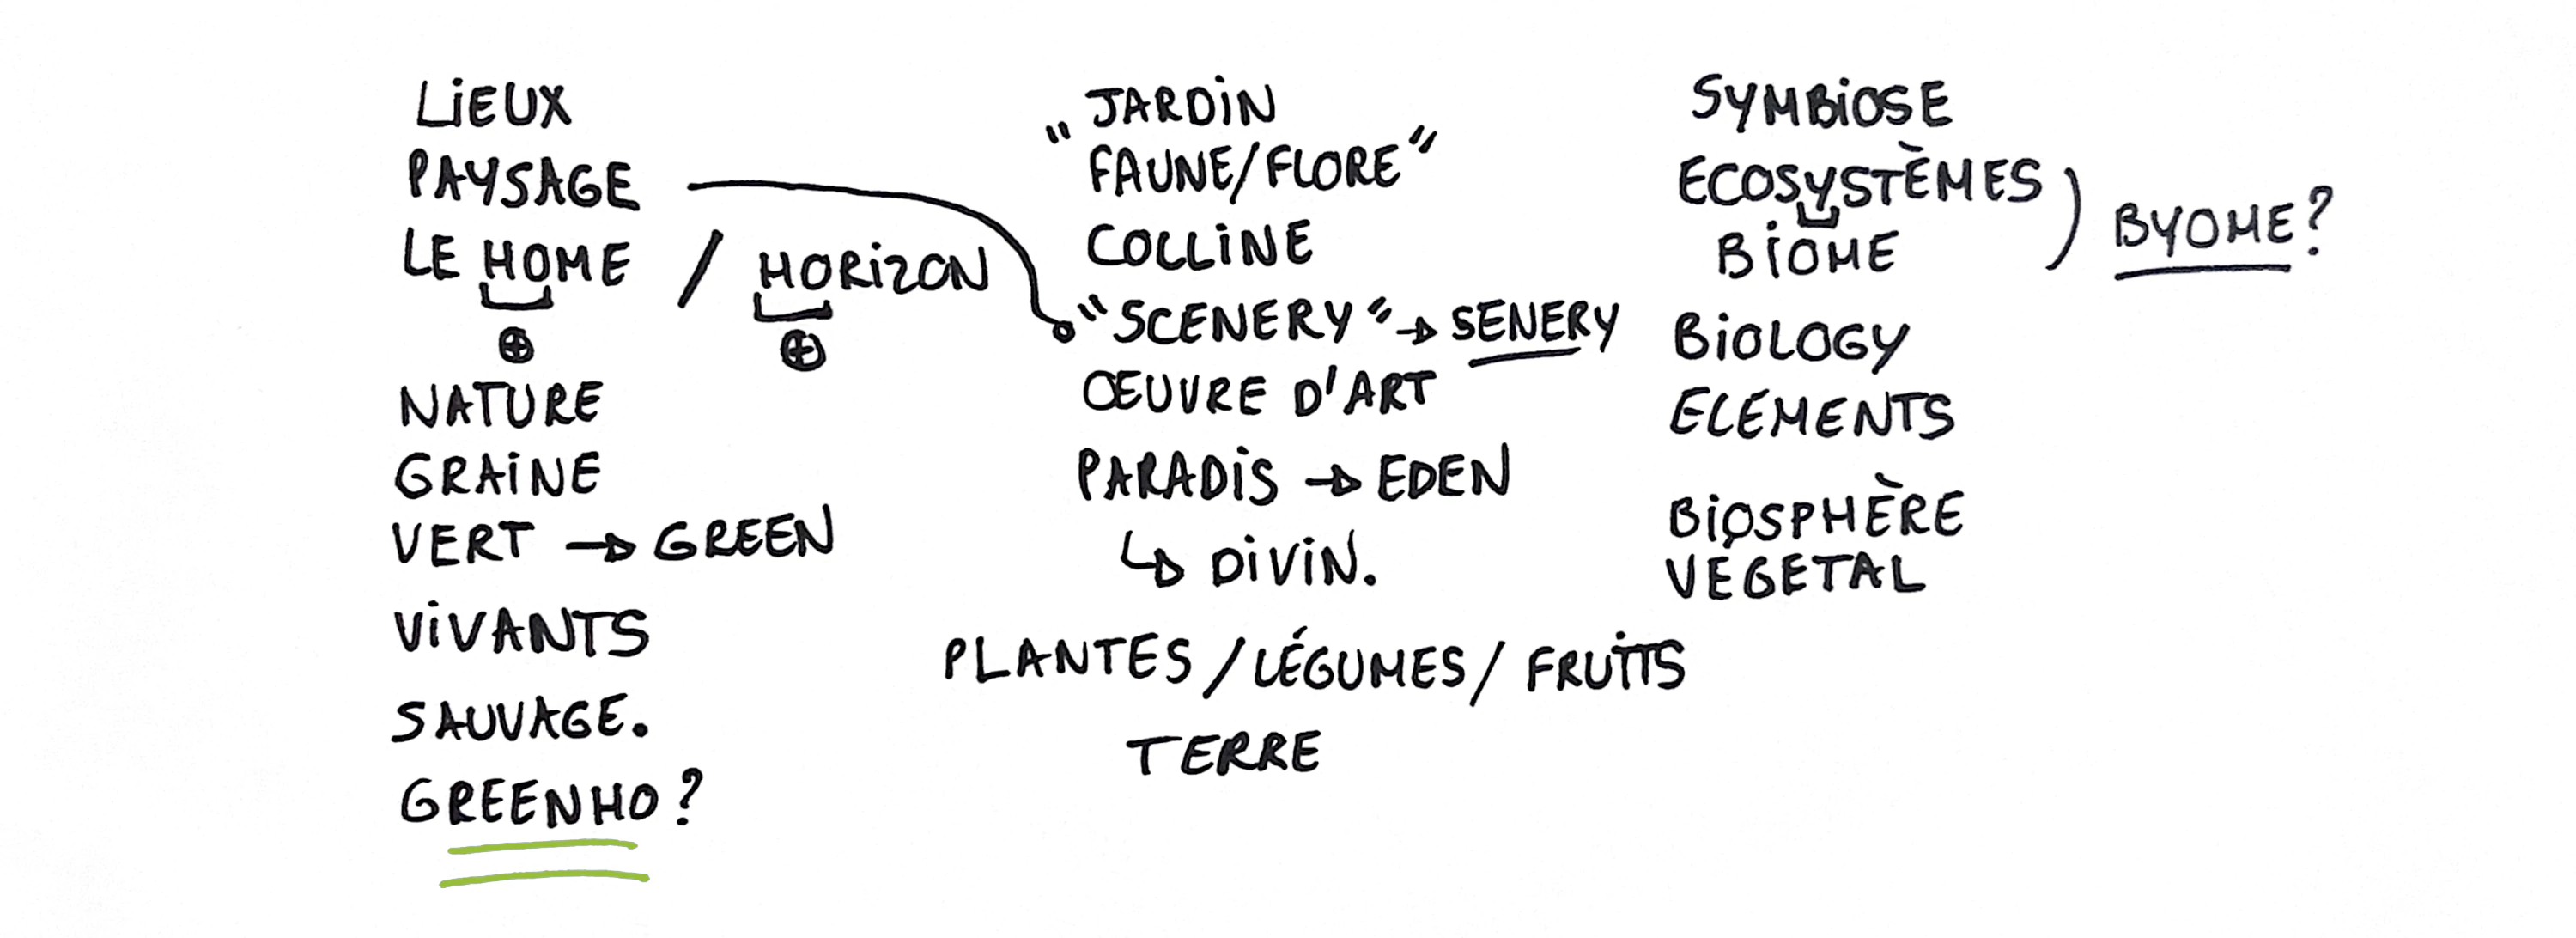 LIEUX
PAYSAGE
LE HOME / HORIZON
⊕ ⊕
NATURE
GRAINE
VERT → GREEN
VIVANTS
SAUVAGE.
GREENHO?
"JARDIN
FAUNE/FLORE"
COLLINE
"SCENERY" → SENERY
ŒUVRE D'ART
PARADIS → EDEN
↳ DIVIN.
PLANTES / LÉGUMES / FRUITS
TERRE
SYMBIOSE
ECOSYSTÈMES
BIOME
) BYOME?
BIOLOGY
ELEMENTS
BIOSPHÈRE
VÉGETAL